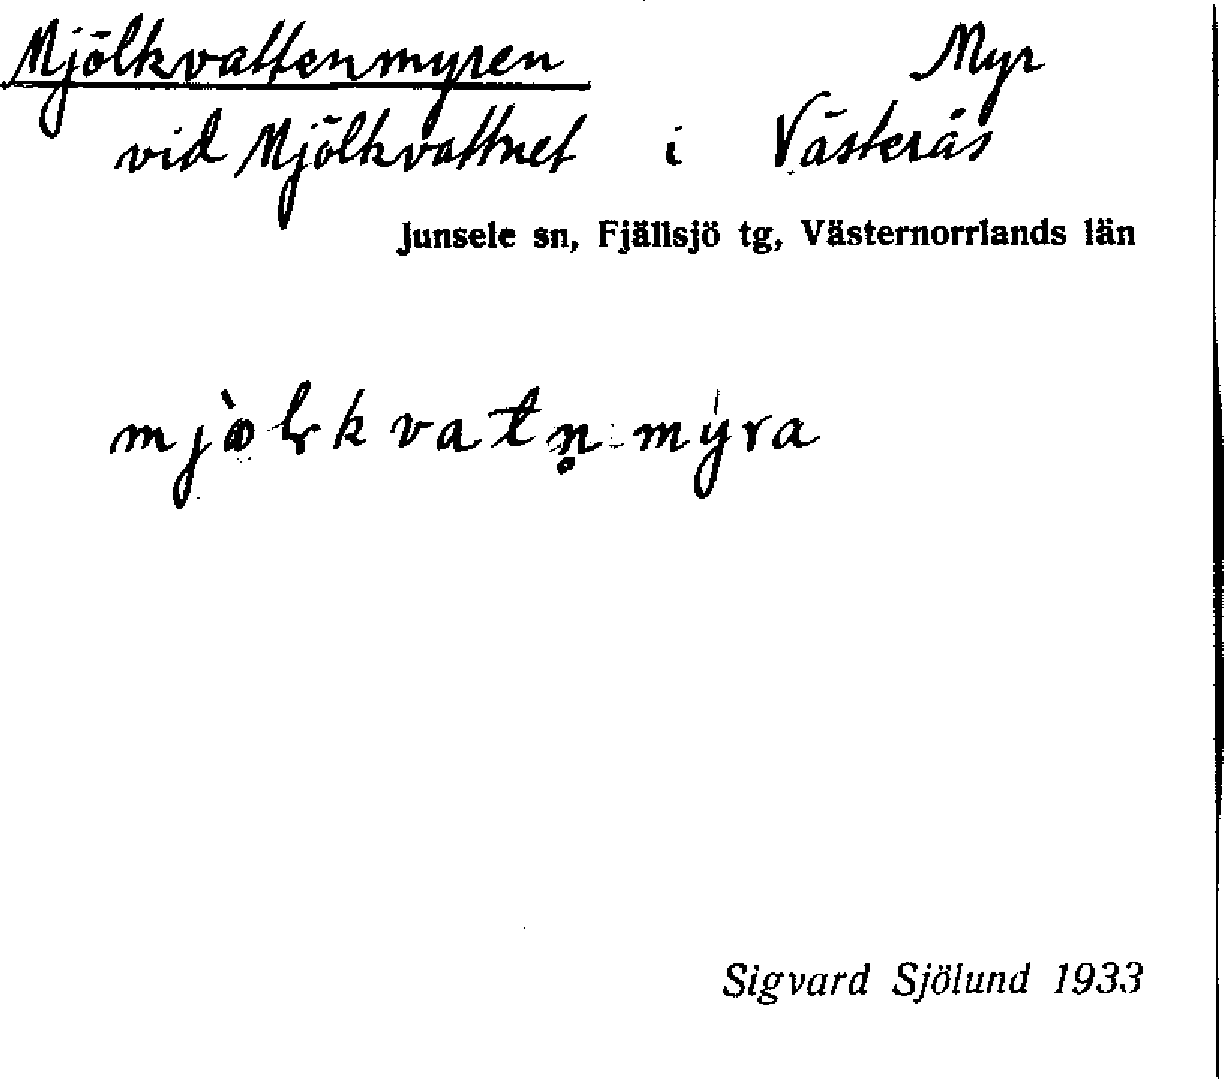 Mjölkvattenmyren Myr
vid Mjölkvattnet i Västerås
Junsele sn, Fjällsjö tg, Västernorrlands län
Sigvard Sjölund 1933